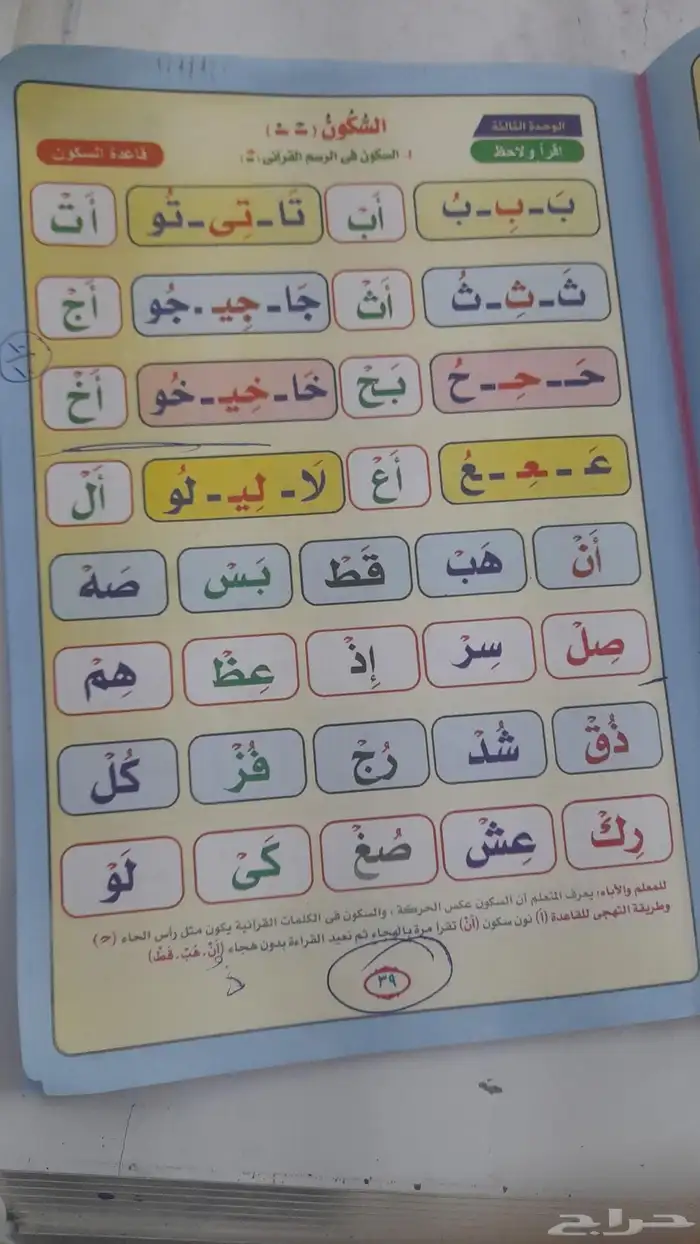 الوحدة الثالثة
السُّكُونُ (ـْ ـْ)
اقرأ ولاحظ
١. السكون فى الرسم القرآنى: (ـْ)
قاعدة السكون
بَ - بِ - بُ أَبْ تَا - تِى - تُو أَتْ
ثَ - ثِ - ثُ أَثْ جَا - جِيـ - جُو أَجْ
حَـ - حِـ - حُ بَحْ خَا - خِيـ - خُو أَخْ
عَـ - عِـ - عُ أَعْ لَا - لِيـ - لُو أَلْ
أَنْ هَبْ قَطْ بَسْ صَهْ
صِلْ سِرْ إِذْ عِظْ هِمْ
ذُقْ شُدْ رُجْ فُزْ كُلْ
رِكْ عِشْ صُغْ كَىْ لَوْ
للمعلم والآباء: يعرف المتعلم أن السكون عكس الحركة، والسكون فى الكلمات القرآنية يكون مثل رأس الحاء (حـ)
وطريقة التهجى للقاعدة (أ) نون سكون (أَنْ) تقرأ مرة بالهجاء ثم نعيد القراءة بدون هجاء (أَنْ. هَبْ. قَطْ)
٣٩
حراج